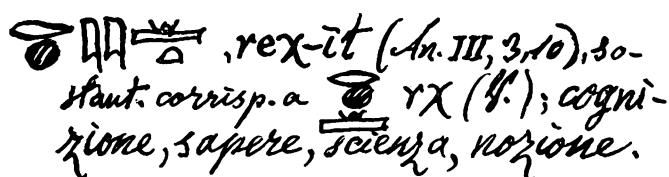 𓂋𓐍𓇋𓇋𓏛𓏏 , rex-it (An. III, 3,10), so-
stant. corrisp. a 𓂋𓐍𓏛 rx (V.); cogni-
zione, sapere, scienza, nozione.